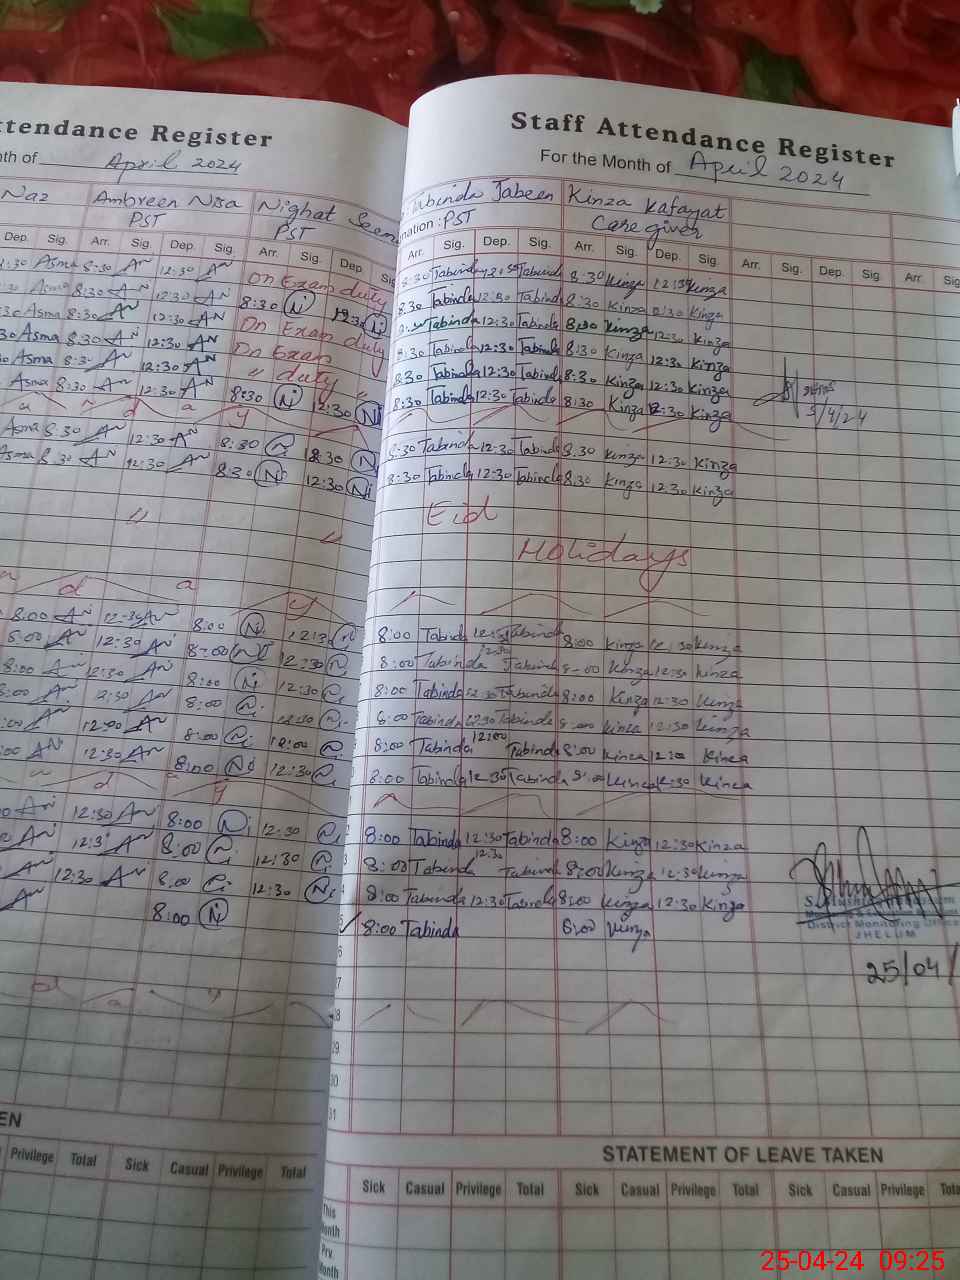 ttendance Register
nth of April 2024
Naz Ambreen Nisa Nighat Seem
PST PST
Dep. Sig. Arr. Sig. Dep. Sig. Arr. Sig. Dep. Sig
Asma 8:30 AN 12:30 AN On Exam duty
Asma 8:30 AN 12:30 AN 8:30 Ni 12:30 Ni
Asma 8:30 AN 12:30 AN On Exam duty
30 Asma 8:30 AN 12:30 AN On Exam
Asma 8:30 AN 12:30 AN " duty "
Asma 8:30 AN 12:30 AN 8:30 Ni 12:30 Ni
u n d a y
Asma 8:30 AN 12:30 AN 8:30 12:30 N
Asma 8:30 AN 12:30 AN 8:30 Ni 12:30 Ni
" "
d a y
8:00 AN 12:30 AN 8:00 Ni 12:30
8:00 AN 12:30 AN 8:00 Ni 12:30
8:00 AN 12:30 AN 8:00 Ni 12:30
8:00 AN 12:30 AN 8:00 12:30
:00 AN 12:00 AN 8:00 12:00
:00 AN 12:30 AN 8:00 Ni 12:30
d a y
AN 12:30 AN 8:00 Ni 12:30
AN 12:3 AN 8:00 12:30
AN 12:30 AN 8:00 12:30 Ni
AN 8:00 Ni
d a y
EN
Privilege Total Sick Casual Privilege Total
Staff Attendance Register
For the Month of April 2024
Tabinda Jabeen Kinza Kafayat
nation : PST Care giver
Arr. Sig. Dep. Sig. Arr. Sig. Dep. Sig. Arr. Sig. Dep. Sig. Arr. Sig.
8:30 Tabinda 12:30 Tabinda 8:30 Kinza 12:30 Kinza
8:30 Tabinda 12:30 Tabinda 8:30 Kinza 12:30 Kinza
8:30 Tabinda 12:30 Tabinda 8:30 Kinza 12:30 Kinza
8:30 Tabinda 12:30 Tabinda 8:30 Kinza 12:30 Kinza
8:30 Tabinda 12:30 Tabinda 8:30 Kinza 12:30 Kinza
8:30 Tabinda 12:30 Tabinda 8:30 Kinza 12:30 Kinza
5/4/24
8:30 Tabinda 12:30 Tabinda 8:30 Kinza 12:30 Kinza
8:30 Tabinda 12:30 Tabinda 8:30 Kinza 12:30 Kinza
Eid
Holidays
8:00 Tabinda 12:30 Tabinda 8:00 Kinza 12:30 Kinza
8:00 Tabinda 12:30 Tabinda 8:00 Kinza 12:30 Kinza
8:00 Tabinda 12:30 Tabinda 8:00 Kinza 12:30 Kinza
8:00 Tabinda 12:30 Tabinda 8:00 Kinza 12:30 Kinza
8:00 Tabinda 12:00 Tabinda 8:00 Kinza 12:00 Kinza
8:00 Tabinda 12:30 Tabinda 8:00 Kinza 12:30 Kinza
8:00 Tabinda 12:30 Tabinda 8:00 Kinza 12:30 Kinza
3 8:00 Tabinda 12:30 Tabinda 8:00 Kinza 12:30 Kinza
4 8:00 Tabinda 12:30 Tabinda 8:00 Kinza 12:30 Kinza
5 8:00 Tabinda 8:00 Kinza
District Monitoring Office
JHELUM
25/04/
6
7
8
29
30
31
STATEMENT OF LEAVE TAKEN
Sick Casual Privilege Total Sick Casual Privilege Total Sick Casual Privilege Tota
This Month
Prv. Month
25-04-24 09:25